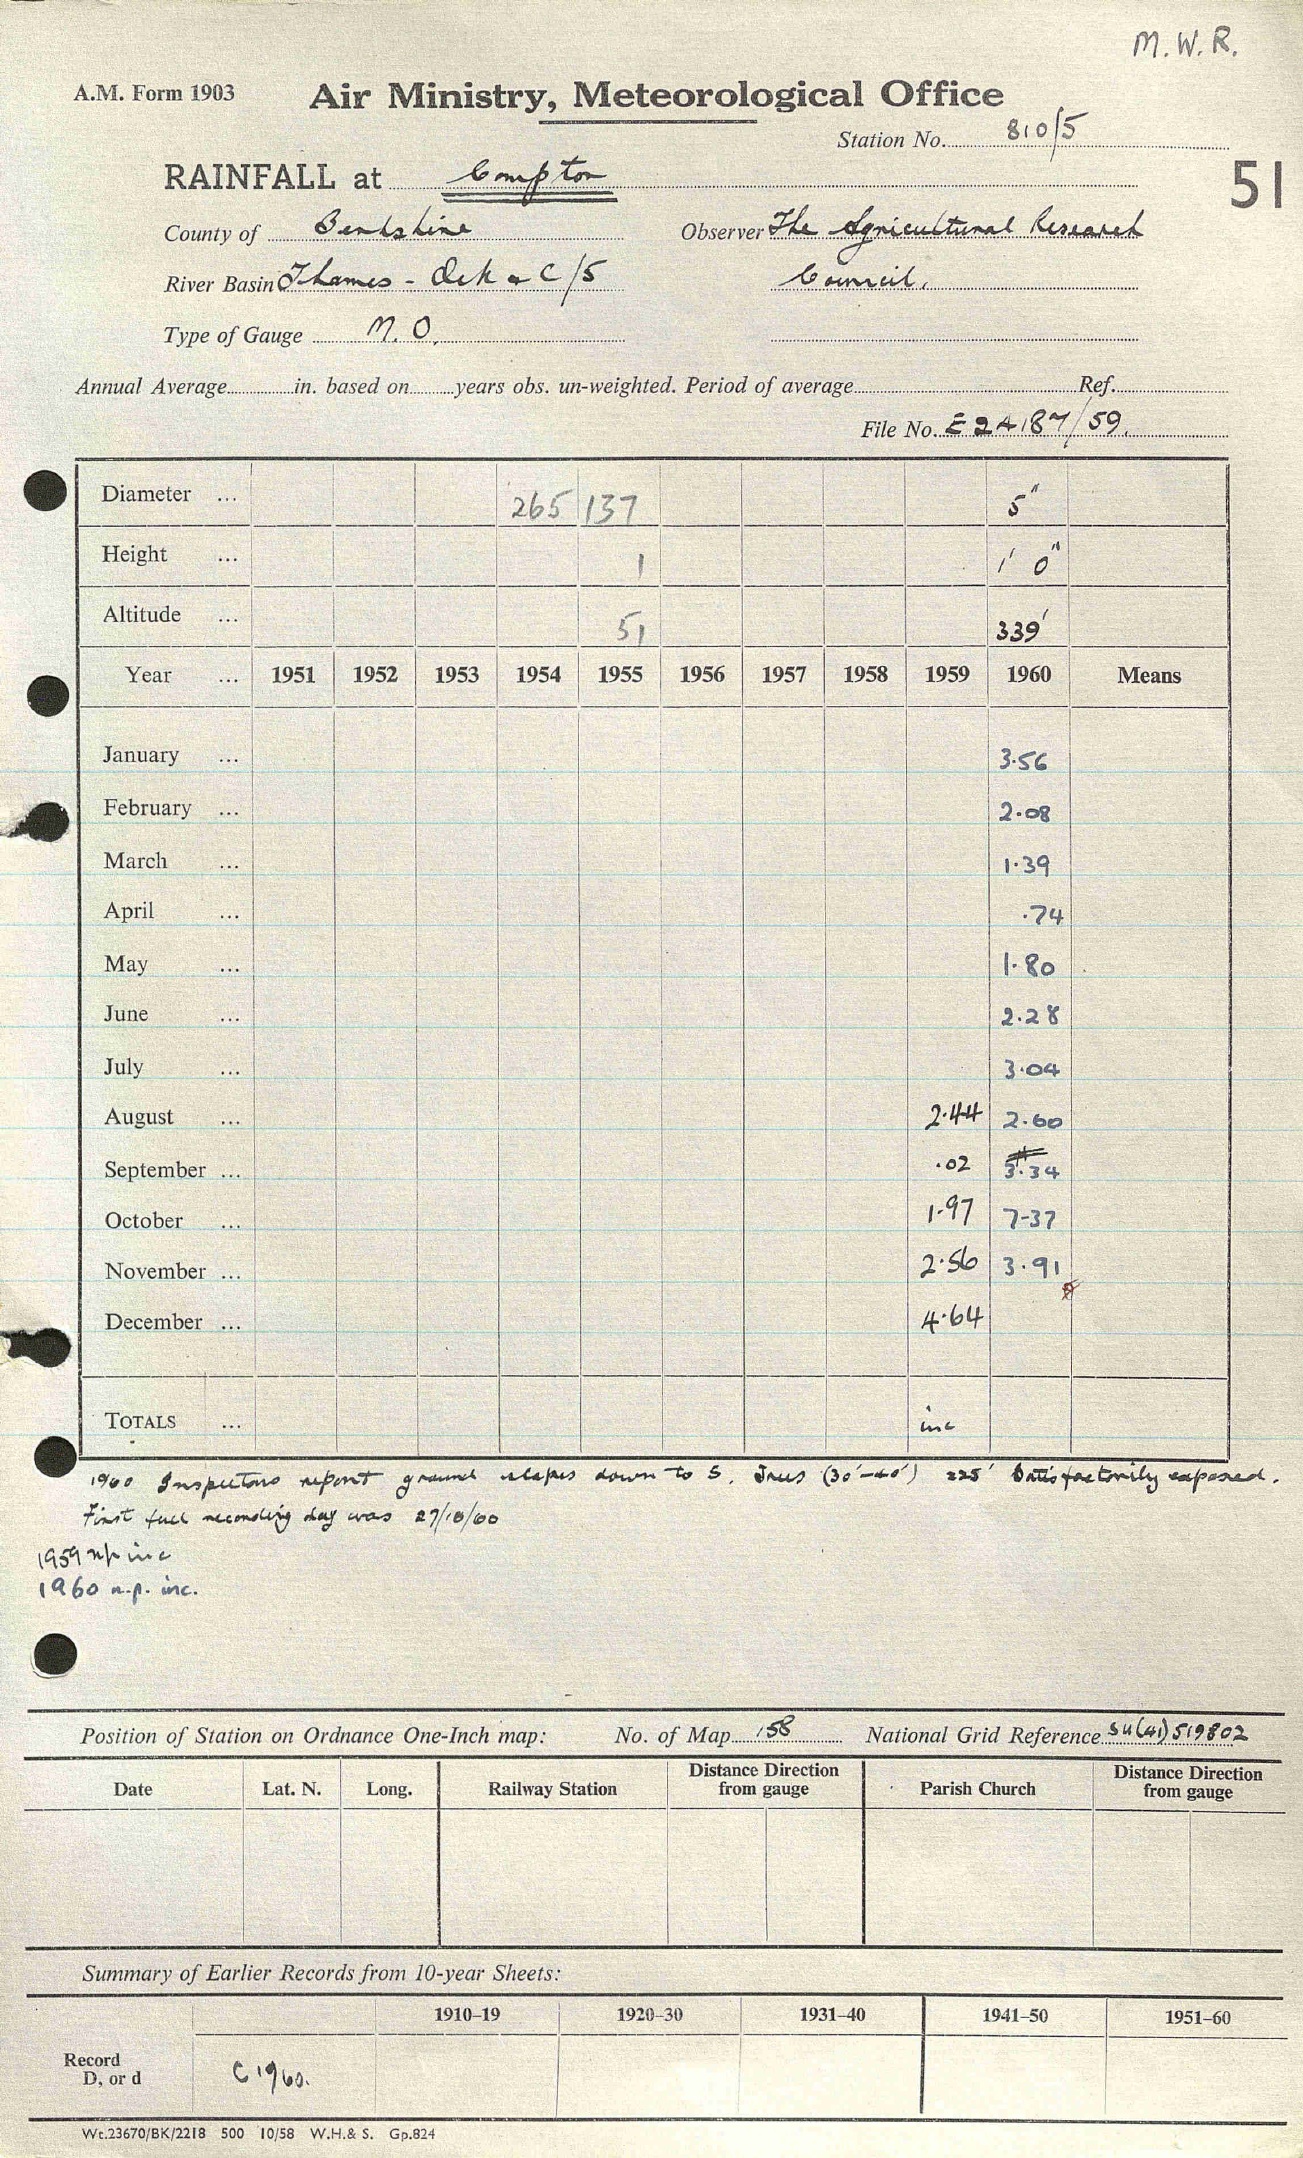 M.W.R.
A.M. Form 1903 Air Ministry, Meteorological Office
Station No. 810/5
RAINFALL at Compton 51
County of Berkshire Observer The Agricultural Research
River Basin Thames - Ock & C/5 Council.
Type of Gauge M.O.
Annual Average in. based on years obs. un-weighted. Period of average Ref.
File No. E24187/59.
Diameter ... 265 137 5"
Height ... 1 1' 0"
Altitude ... 51 339'
Year ... 1951 1952 1953 1954 1955 1956 1957 1958 1959 1960 Means
January ... 3.56
February ... 2.08
March ... 1.39
April ... .74
May ... 1.80
June ... 2.28
July ... 3.04
August ... 2.44 2.60
September ... .02 3.34
October ... 1.97 7-37
November ... 2.56 3.91
December ... 4.64
TOTALS ... inc
1960 Inspectors report ground slopes down to S. Trees (30'-40') 225' Satisfactorily exposed.
First full recording day was 27/10/60
1959 np inc
1960 n.p. inc.
Position of Station on Ordnance One-Inch map: No. of Map 158 National Grid Reference SU(41)519802
Date Lat. N. Long. Railway Station Distance Direction from gauge Parish Church Distance Direction from gauge
Summary of Earlier Records from 10-year Sheets:
1910–19 1920–30 1931–40 1941–50 1951–60
Record
D, or d C 1960.
Wt.23670/BK/2218 500 10/58 W.H.& S. Gp.824